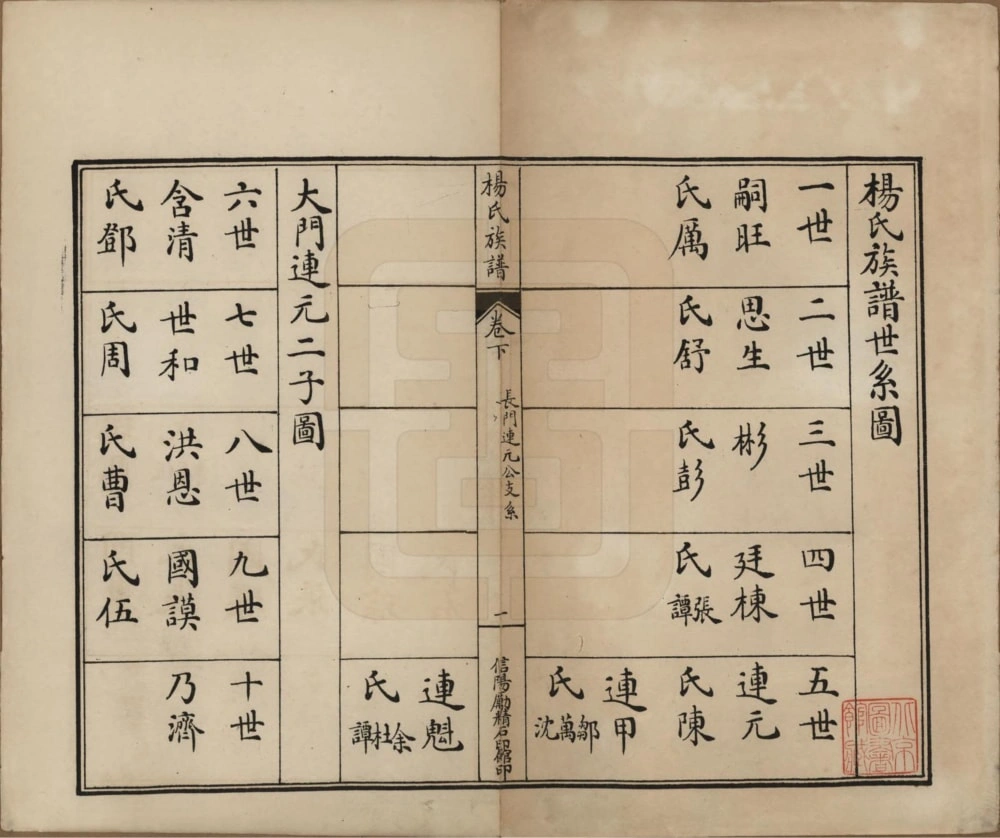 楊氏族譜世系圖
一世
嗣旺
氏厲
二世
思生
氏舒
三世
彬
氏彭
四世
廷棟
氏張譚
五世
連元
氏陳
連甲
氏鄒萬沈
楊氏族譜
卷下
長門連元公支系
一
信陽勵精石印館印
連魁
氏余杜譚
大門連元二子圖
六世
含清
氏鄧
七世
世和
氏周
八世
洪恩
氏曹
九世
國謨
氏伍
十世
乃濟